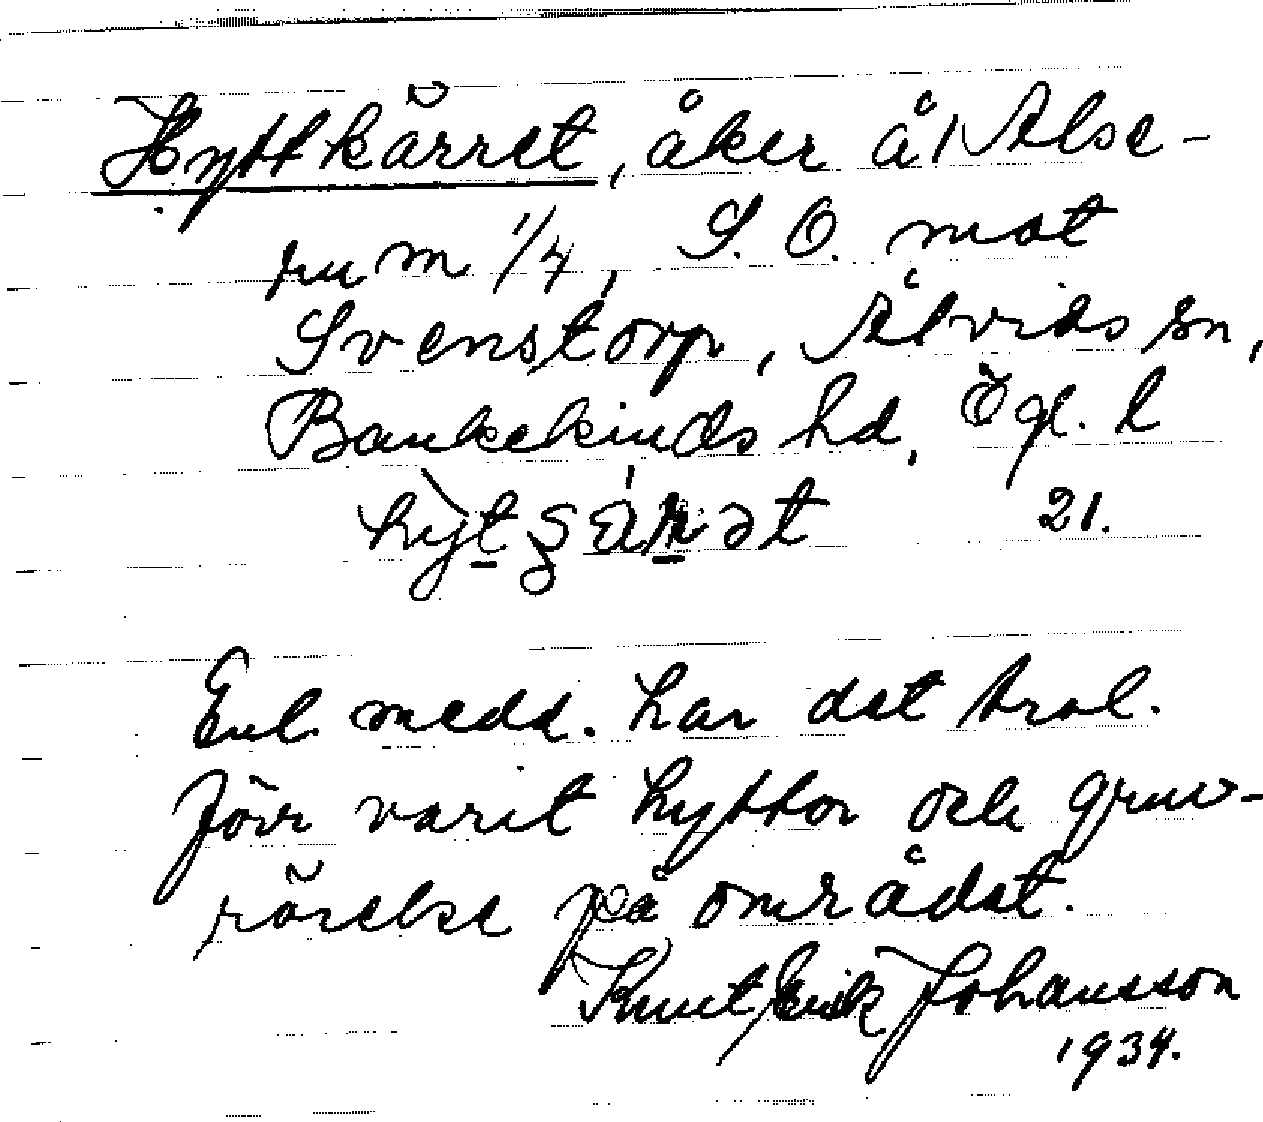 Hyttkärret, åker å Alse-
rum 1/4, S. O. mot
Svenstorp, Åtvids sn,
Bankekinds hd, Ögl. l
21.
Enl. medd. har det trol.
förr varit hyttor och gruv-
rörelse på området.
Knut Erik Johansson
1934.